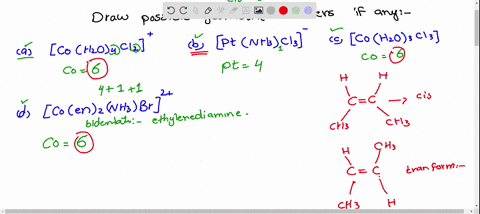 Draw possible geom ers if any:-
(a) [Co(H2O)4Cl2]+
(b) [Pt(NH3)Cl3]-
(c) [Co(H2O)3Cl3]
Co = 6
pt = 4
Co = 6
4+1+1
(d) [Co(en)2(NH3)Br]2+
bidentate:- ethylenediamine.
Co = 6
H H
C=C → cis
CH3 CH3
H CH3
C=C transform:-
CH3 H